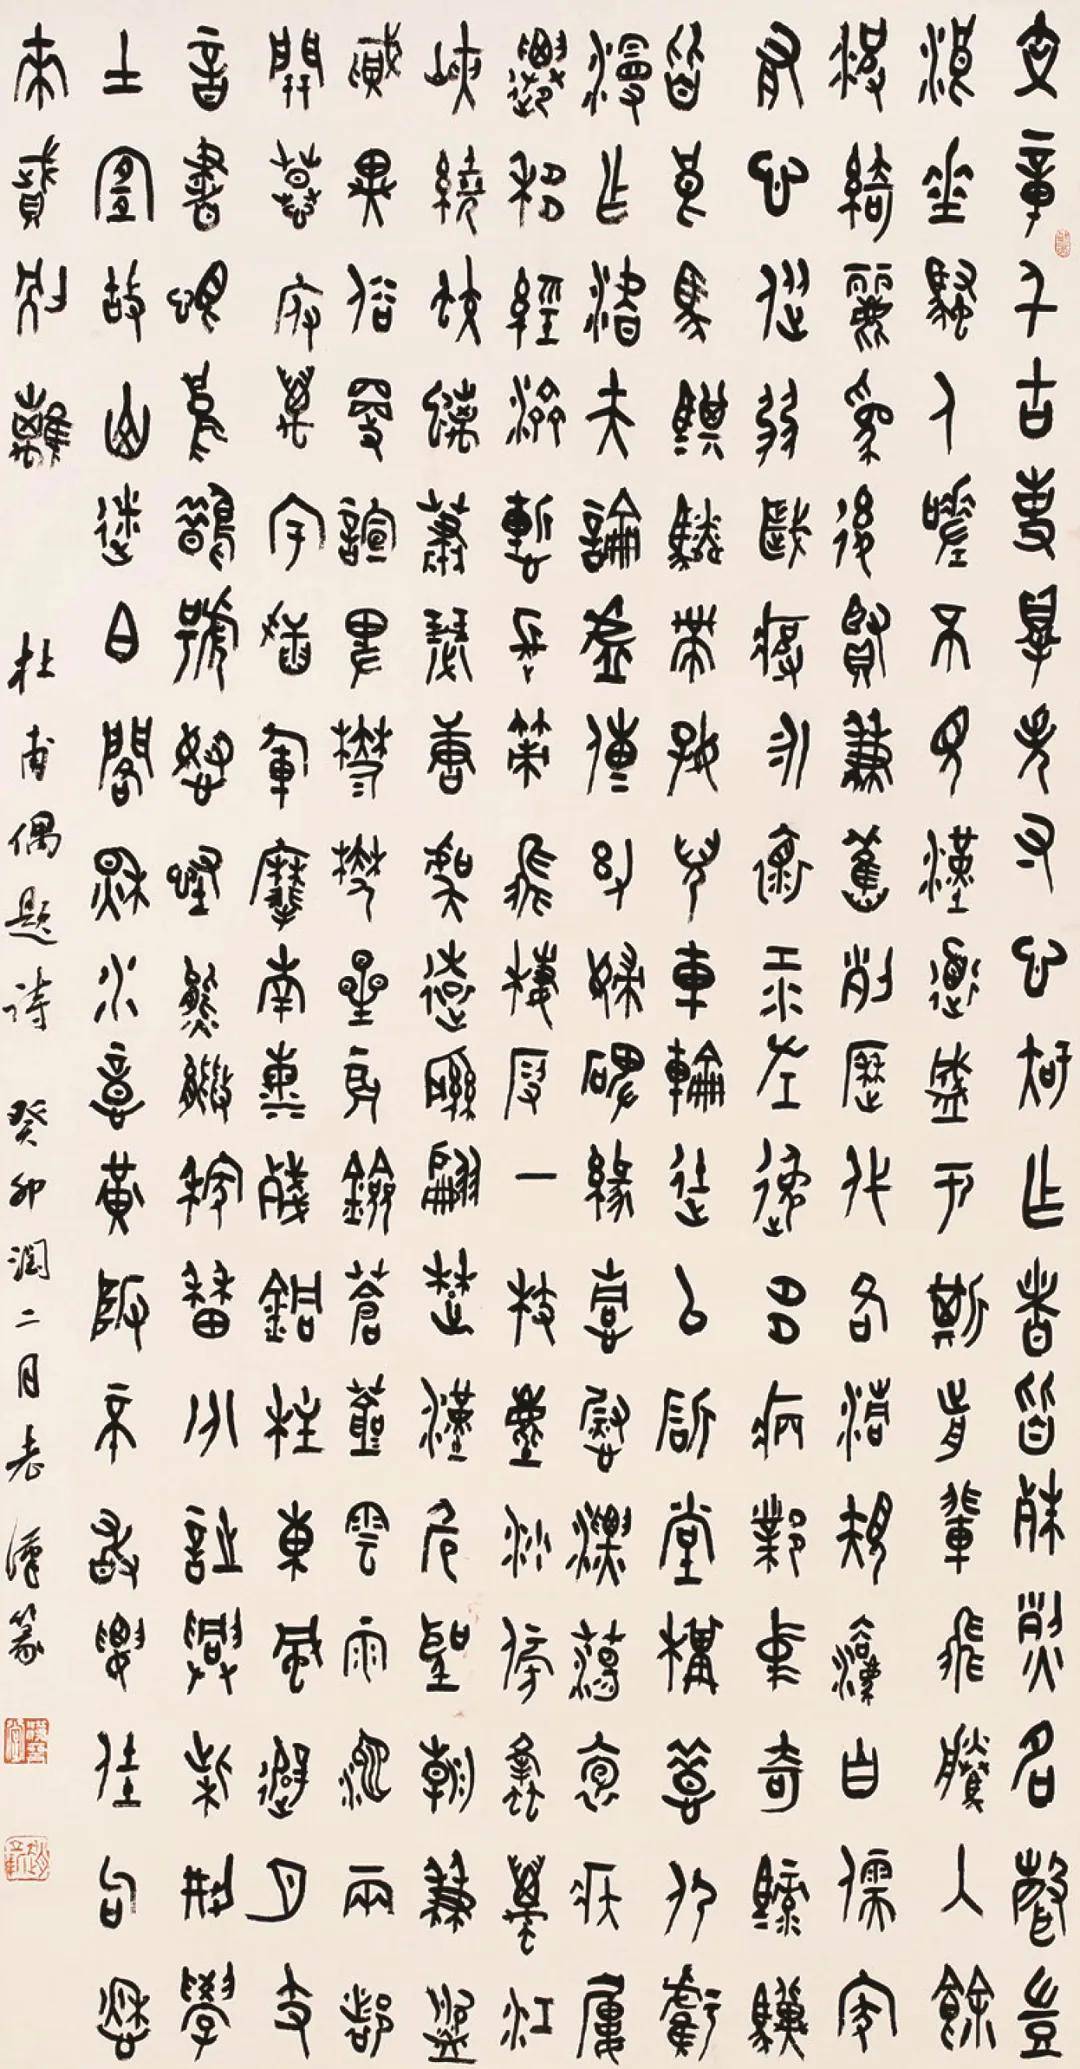 文章千古事得失寸心知作者皆殊列名聲豈
浪垂騷人嗟不見漢道盛于斯前輩飛騰入餘
波綺麗為後賢兼舊列歷代各清規法自儒家
有心從弱歲疲永懷江左逸多病鄴中奇騄驥
皆良馬騏驎帶好兒車輪徒已斲堂構惜仍虧
漫作潛夫論虛傳幼婦碑緣情慰漂蕩抱疾屢
遷移經濟慚長策飛棲假一枝塵沙傍蜂蠆江
峽繞蛟螭蕭瑟唐虞遠聯翩楚漢危聖朝兼盜
賊異俗更喧卑鬱鬱星辰劍蒼蒼雲雨池兩都
開幕府萬宇插軍麾南海殘銅柱東風避月支
音書恨烏鵲號怒怪熊羆稼穡分詩興柴荊學
土宜故山迷白閣秋水憶黃陂不敢要佳句愁
來賦別離 杜甫偶題詩 癸卯潤二月老漢篆